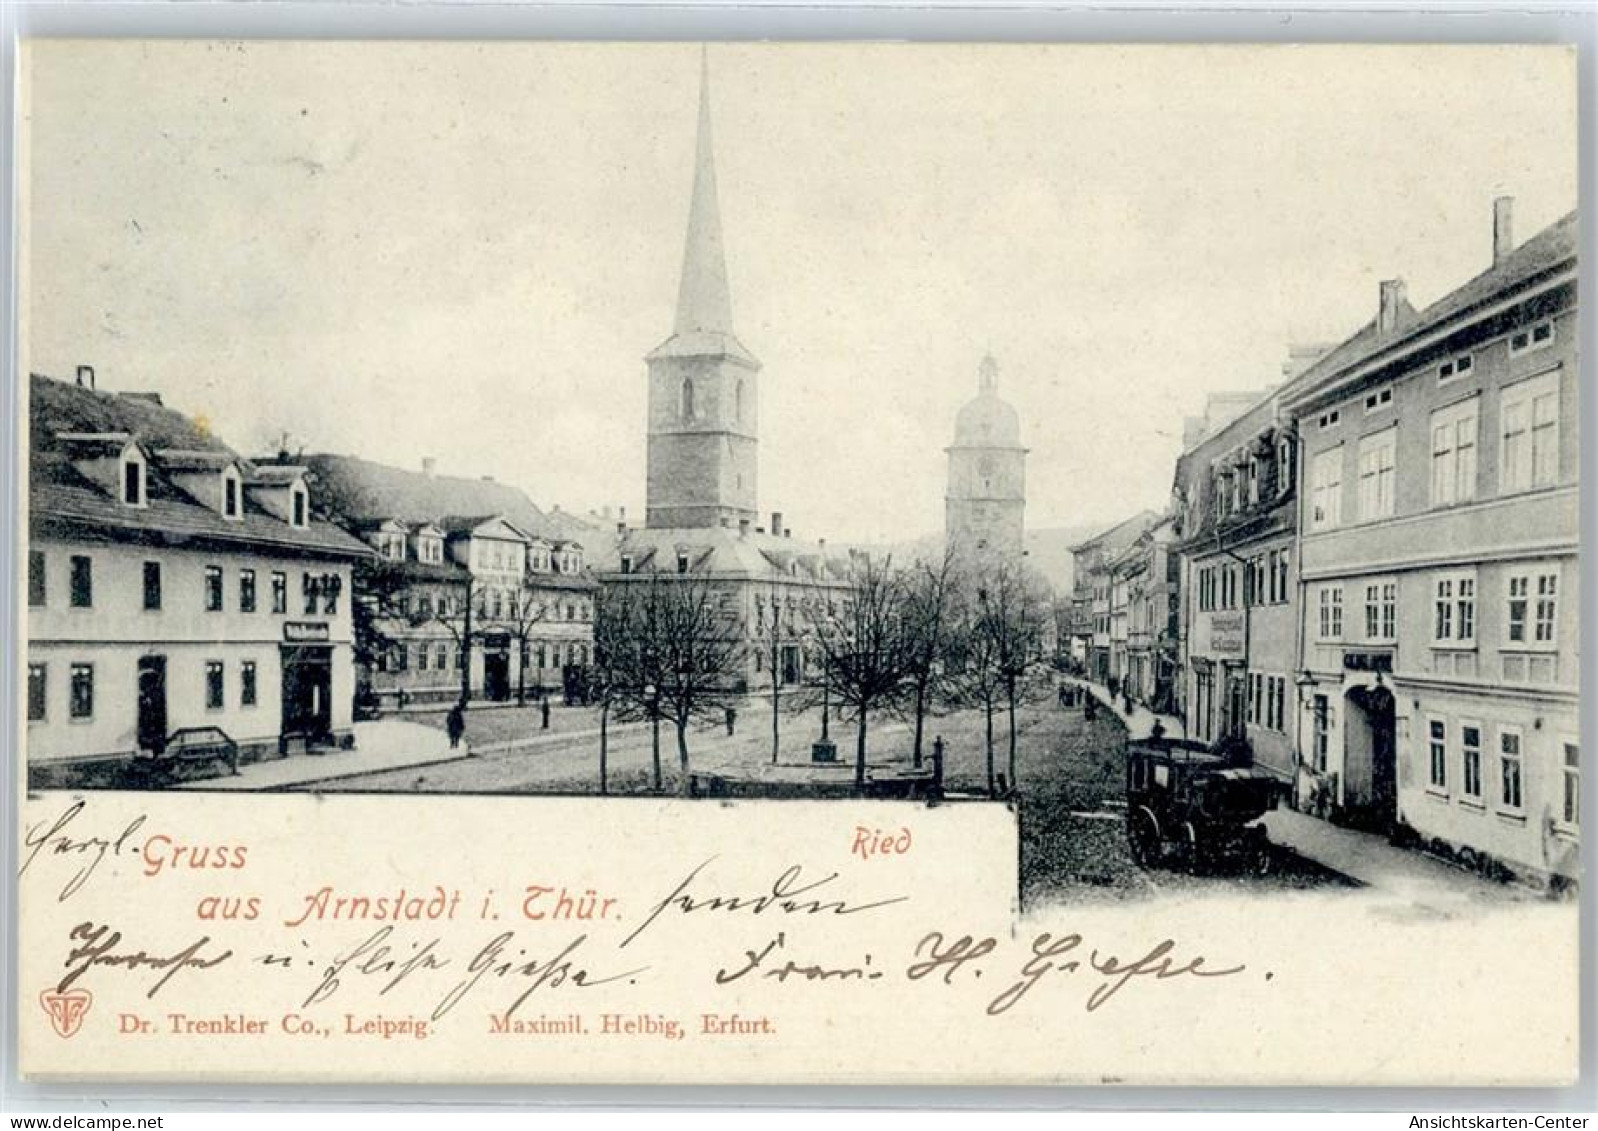 Ried
herzl. Gruss
aus Arnstadt i. Thür. senden
Therese u. Elise Gießse. Frau H. Giefse.
Dr. Trenkler Co., Leipzig. Maximil. Helbig, Erfurt.
Ansichtskarten-Center